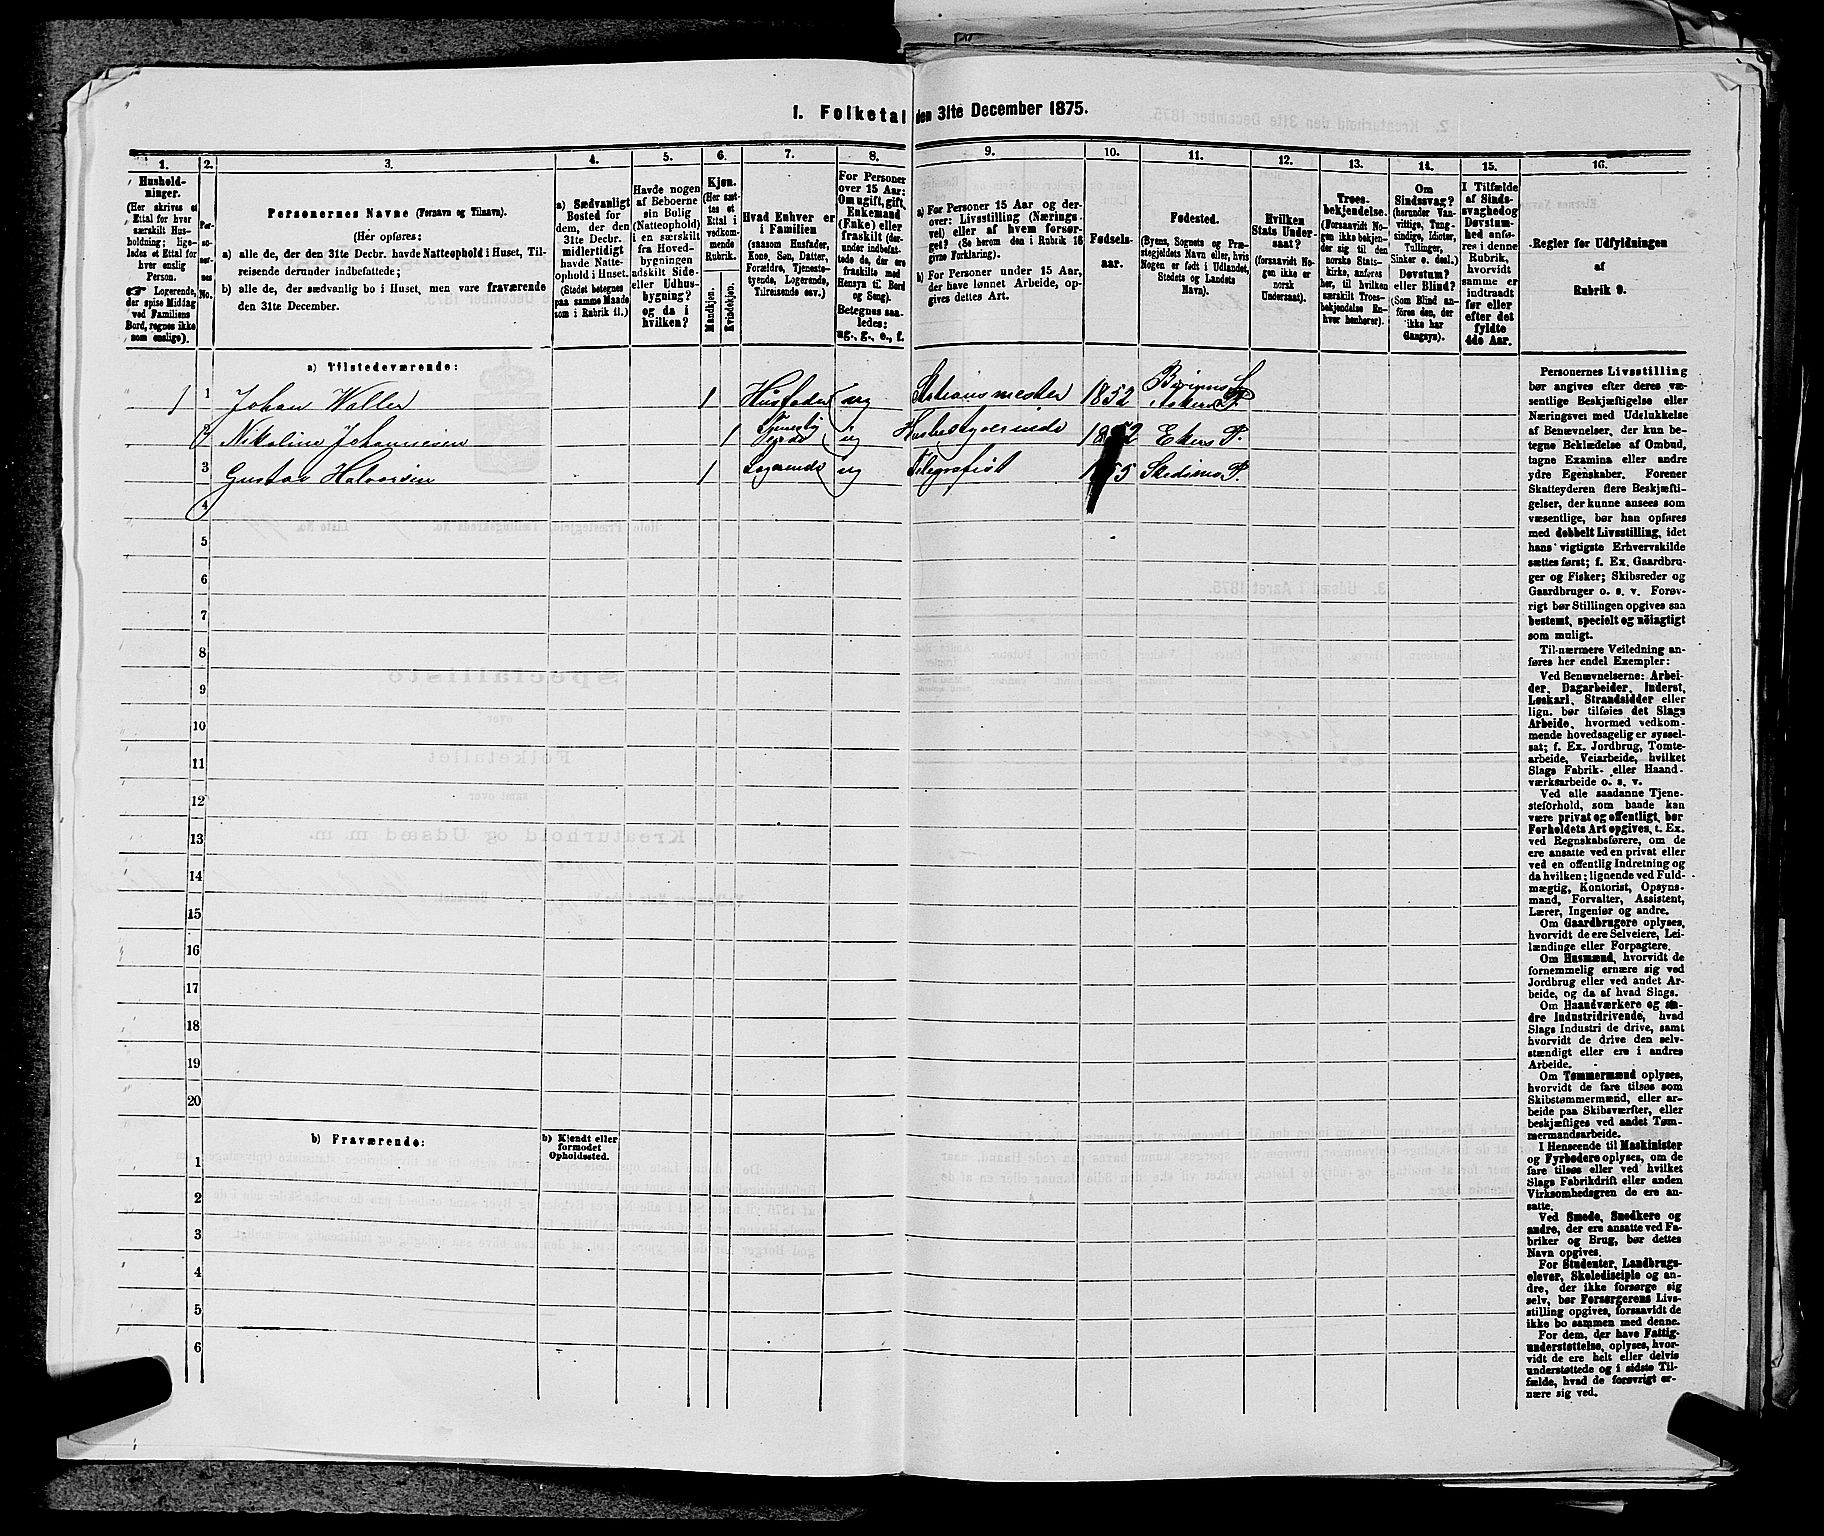 1. Folketal den 31te December 1875.
1. 2. 3. 4. 5. 6. 7. 8. 9. 10. 11. 12. 13. 14. 15. 16.
Hushold-
ninger.
(Her skrives et
Ettal for hver
særskilt Hus-
holdning; lige-
ledes et Ettal for
hver enslig
Person.
☞ Logerende,
der spise Middag
ved Familiens
Bord, regnes ikke
som enslige).
Per-
so-
ner-
nes
No.
Personernes Navne (Fornavn og Tilnavn).
(Her opføres:
a) alle de, der den 31te Decbr. havde Natteophold i Huset, Til-
reisende derunder indbefattede;
b) alle de, der sædvanlig bo i Huset, men vare fraværende
den 31te December.
a) Sædvanligt
Bosted for
dem, der den
31te Decbr.
midlertidigt
havde Natte-
ophold i Huset.
(Stedet betegnes
paa samme Maade
som i Rubrik 11.)
Havde nogen
af Beboerne
sin Bolig
(Natteophold)
i en særskilt
fra Hoved-
bygningen
adskilt Side-
eller Udhus-
bygning?
og da i
hvilken?
Kjøn.
(Her sæt-
tes et
Ettal i
vedkom-
mende
Rubrik.
Mandkjøn.
Kvindekjøn.
Hvad Enhver er
i Familien
(saasom Husfader,
Kone, Søn, Datter,
Forældre, Tjeneste-
tyende, Logerende,
Tilreisende osv.)
For Personer
over 15 Aar:
Om ugift, gift,
Enkemand
(Enke) eller
fraskilt (der-
under indbefat-
tede de, der ere
fraskilte med
Hensyn til Bord
og Seng).
Betegnes saa-
ledes:
ug., g., e., f.
a) For Personer 15 Aar og der-
over: Livsstilling (Nærings-
vei) eller af hvem forsør-
get? (Se herom den i Rubrik 16
givne Forklaring).
b) For Personer under 15 Aar,
der have lønnet Arbeide, op-
gives dettes Art.
Fødsels-
aar.
Fødested.
(Byens, Sognets og Præ-
stegjeldets Navn eller, hvis
Nogen er født i Udlandet,
Stedets og Landets
Navn).
Hvilken
Stats Under-
saat?
(forsaavidt No-
gen ikke er
norsk
Undersaat).
Troes-
bekjendelse.
(Forsaavidt No-
gen ikke bekjen-
der sig til den
norske Stats-
kirke, anføres
her, til hvilken
særskilt Troes-
bekjendelse En-
hver henhører).
Om
Sindssvag?
(herunder Van-
vittige, Tung-
sindige, Idioter,
Tullinger,
Sinker o. desl.)
Døvstum?
eller Blind?
(Som Blind an-
føres den, der
ikke har
Gangsyn).
I Tilfælde
af Sinds-
svaghed og
Døvstum-
hed anfø-
res i denne
Rubrik,
hvorvidt
samme er
indtraadt
før eller
efter det
fyldte
4de Aar.
Regler for Udfyldningen
af
Rubrik 9.
a) Tilstedeværende:
1 1 Johan Weller 1 Husfader ug Stationsmester 1852 Bærums S. Askers P.
2 Nikoline Johannesen 1 Tjenesty Tyende ug Husbestyrerinde 1852 Ekers P.
3 Gustav Halvorsen 1 Logerende ug Telegrafist 1855 Skedsmo P.
4
5
6
7
8
9
10
11
12
13
14
15
16
17
18
19
20
b) Fraværende:
b) Kjendt eller
formodet
Opholdssted.
1
2
3
4
5
6
Personernes Livsstilling
bør angives efter deres væ-
sentlige Beskjæftigelse eller
Næringsvei med Udelukkelse
af Benævnelser, der kun be-
tegne Beklædelse af Ombud,
tagne Examina eller andre
ydre Egenskaber. Forener
Skatteyderen flere Beskjæfti-
gelser, der kunne ansees som
væsentlige, bør han opføres
med dobbelt Livsstilling, idet
hans vigtigste Erhvervskilde
sættes først; f. Ex. Gaardbru-
ger og Fisker; Skibsreder og
Gaardbruger o. s. v. Forøv-
rigt bør Stillingen opgives saa
bestemt, specielt og nøiagtigt
som muligt.
Til nærmere Veiledning an-
føres her endel Exempler:
Ved Benævnelserne: Arbei-
der, Dagarbeider, Inderst,
Løskarl, Strandsidder eller
lign. bør tilføies det Slags
Arbeide, hvormed vedkom-
mende hovedsagelig er syssel-
sat; f. Ex. Jordbrug, Tomte-
arbeide, Veiarbeide, hvilket
Slags Fabrik- eller Haand-
værksarbeide o. s. v.
Ved alle saadanne Tjene-
steforhold, som baade kan
være privat og offentligt, bør
Forholdets Art opgives, t. Ex.
ved Regnskabsførere, om de
ere ansatte ved en privat eller
ved en offentlig Indretning og
da hvilken; lignende ved Fuld-
mægtig, Kontorist, Opsyns-
mand, Forvalter, Assistent,
Lærer, Ingeniør og andre.
Om Gaardbrugere oplyses,
hvorvidt de ere Selveiere, Lei-
lændinge eller Forpagtere.
Om Husmænd, hvorvidt de
fornemmelig ernære sig ved
Jordbrug eller ved andet Ar-
beide, og da af hvad Slags.
Om Haandværkere og an-
dre Industridrivende, hvad
Slags Industri de drive, samt
hvorvidt de drive den selv-
stændigt eller ere i andres
Arbeide.
Om Tømmermænd oplyses,
hvorvidt de fare tilsøs som
Skibstømmermænd, eller ar-
beide paa Skibsværfter, eller
beskjæftiges ved andet Tøm-
mermandsarbeide.
I Henseende til Maskinister
og Fyrbødere oplyses, om de
fare tilsøs eller ved hvilket
Slags Fabrikdrift eller anden
Virksomhedsgren de ere an-
satte.
Ved Smede, Snedkere og
andre, der ere ansatte ved Fa-
briker og Brug, bør dettes
Navn opgives.
For Studenter, Landbrugs-
elever, Skoledisciple og an-
dre, der ikke forsørge sig
selv, bør Forsørgerens Livs-
stilling opgives, forsaavidt de
ikke bo sammen med denne.
For dem, der have Fattig-
understøttelse, oplyses, hvor-
vidt de ere helt eller delvis
understøttede og i sidste Til-
fælde, hvad de forøvrigt er-
nære sig ved.